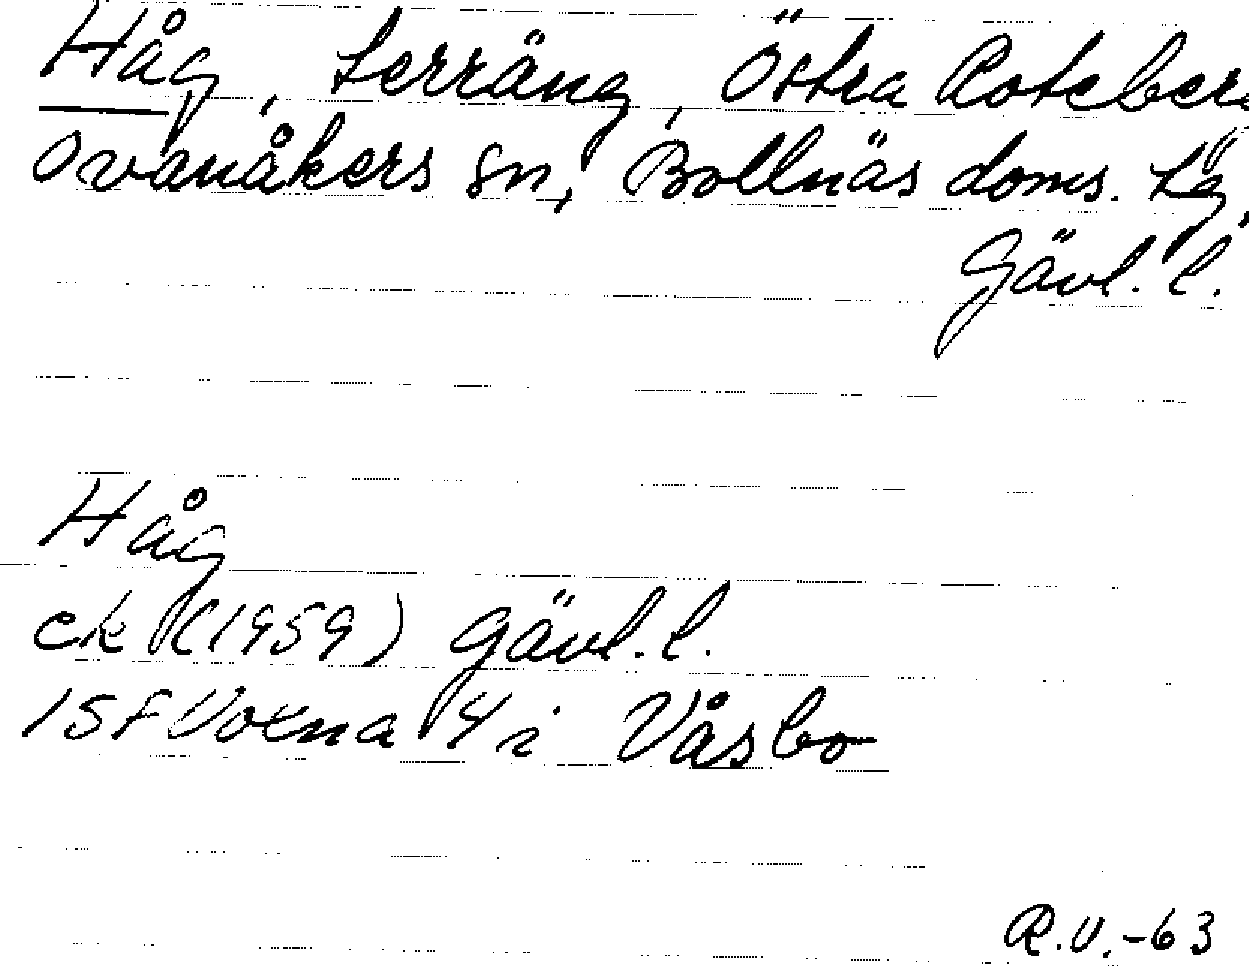 Håg, terräng, Östra Roteberg
Ovanåkers sn, Bollnäs doms. Lg,
Gävl. l.
Håg
ek (1959) Gävl. l.
15f Voxna 4 i Våsbo
R.V.-63